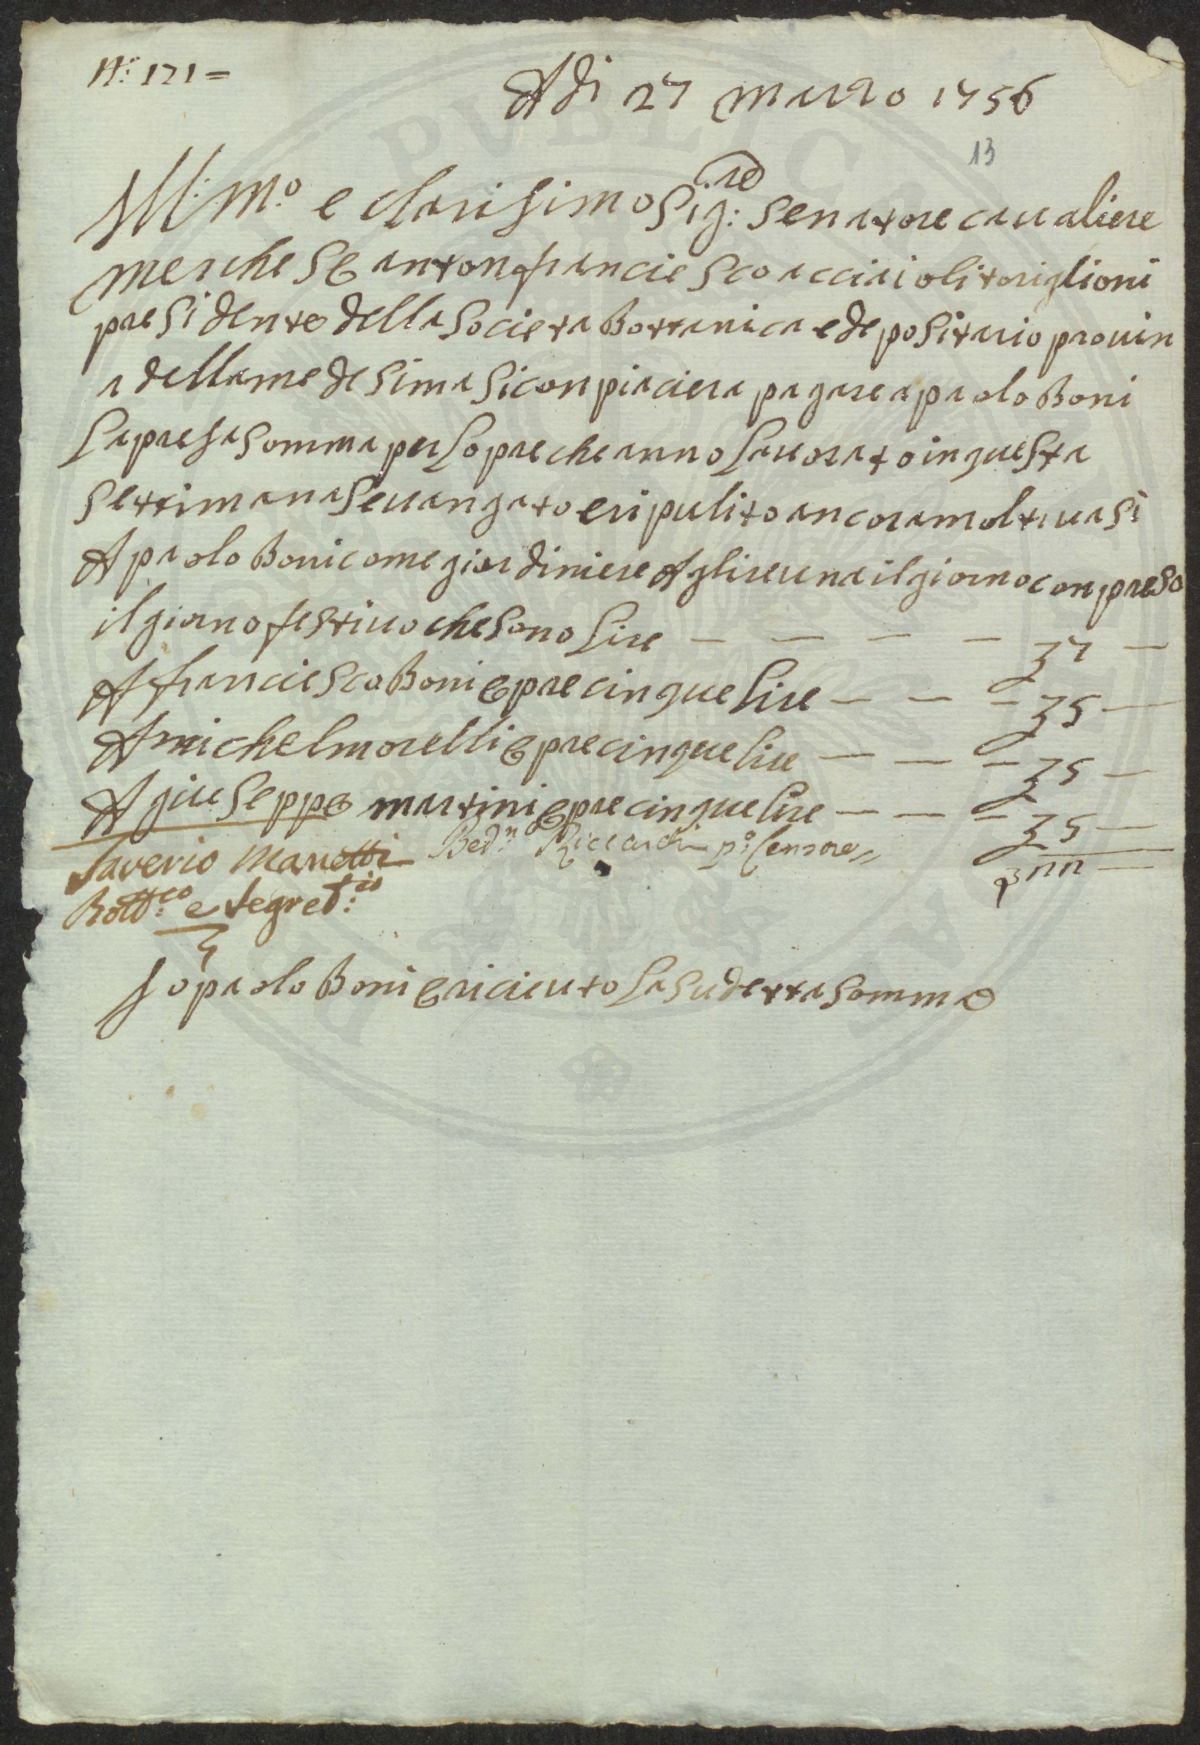 N:° 121=
Adi 27 marzo 1756
13
Ill:mo e clarisimo Sig:re Senatore cavaliere
merchese antonfranciesco acciaioli toriglioni
presidente della Societa Bottanica e depositario provin
a della medesima Siconpiaciera pagare a paolo Boni
La presa somma per Lopre che anno Lavorato in questa
Settimana Se vangato e ripulito ancora molti vasi
A paolo Boni come giardiniere A glire una il giorno conpreso
il giorno festivo che sono Lire — — — — 37 —
A franciesco Boni Opre cinque Lire — — — 35 —
A michel morelli Opre cinque Lire — — — 35 —
A giuseppe martini Opre cinque Lire — — — 35 —
Saverio Manetti Bedn Riccardi p:° Censore 322 —
Bott:co e Segret:io
Io paolo Boni O riceuto La sudetta somma